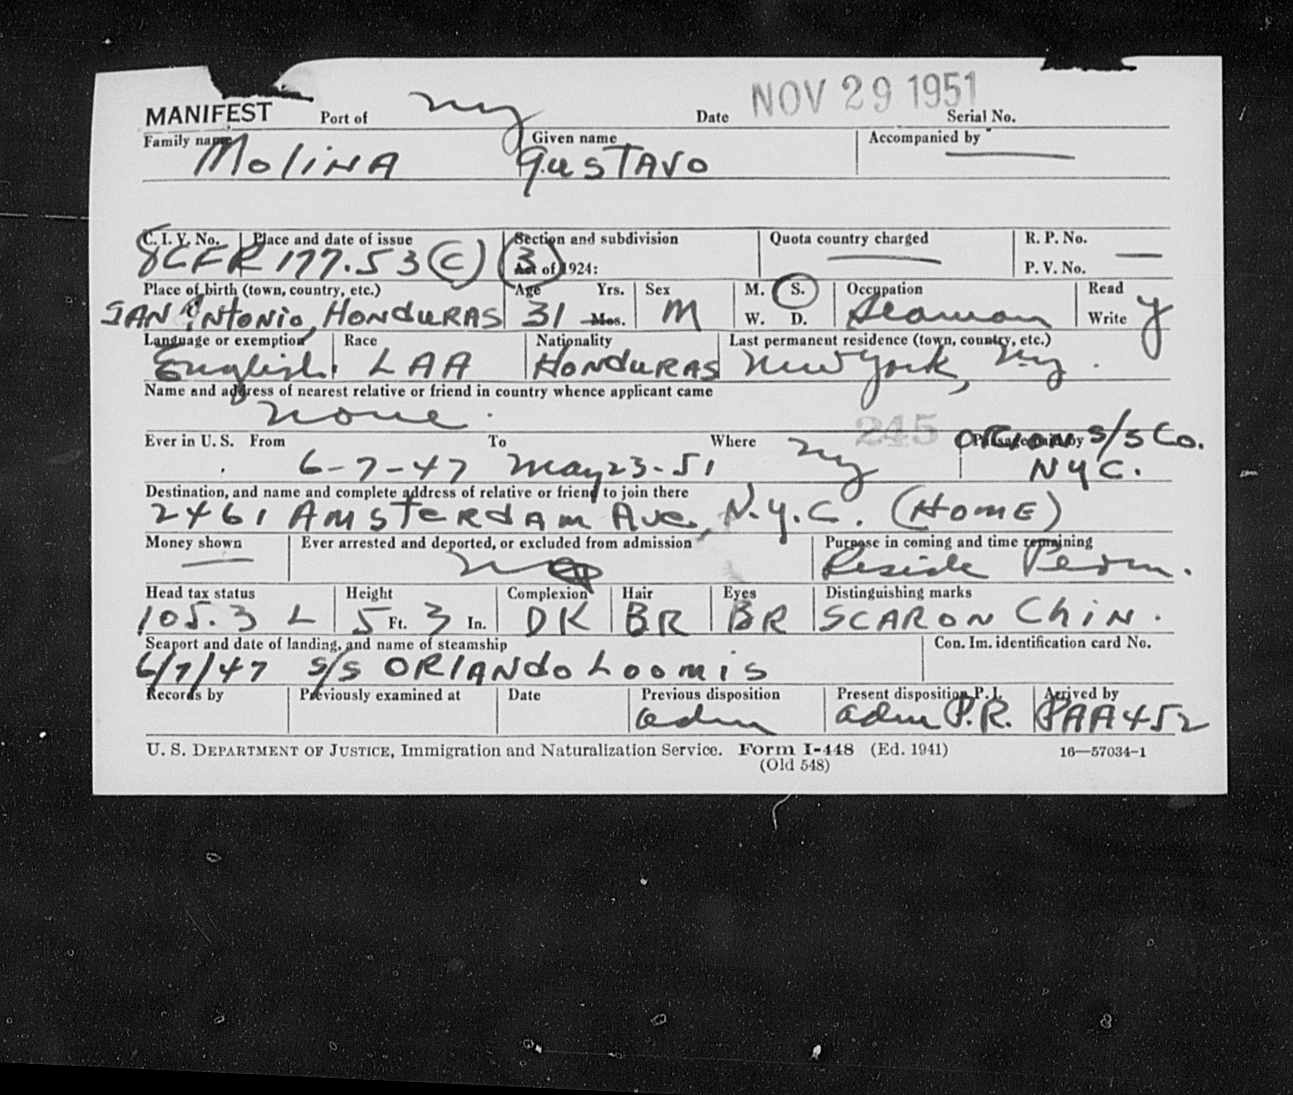 NOV 29 1951
MANIFEST Port of NY Date Serial No.
Family name Given name Accompanied by
MOLINA GUSTAVO —
C. I. V. No. Place and date of issue Section and subdivision Quota country charged R. P. No.
8CFR 177.53 (C) (3) Act of 1924: — P. V. No. —
Place of birth (town, country, etc.) Age Yrs. Sex M. S. Occupation Read
SAN ANTONIO, HONDURAS 31 Mos. M W. D. Seaman Write Y
Language or exemption Race Nationality Last permanent residence (town, country, etc.)
English LAA HONDURAS New York, NY.
Name and address of nearest relative or friend in country whence applicant came
none
245
Ever in U. S. From To Where Passage paid by S/S Co.
6-7-47 May 23-51 NY NYC.
Destination, and name and complete address of relative or friend to join there
2461 AMSTERDAM AVE, N.Y.C. (HOME)
Money shown Ever arrested and deported, or excluded from admission Purpose in coming and time remaining
— No Reside Perm.
Head tax status Height Complexion Hair Eyes Distinguishing marks
105.3 L 5 Ft. 3 In. DK BR BR SCAR ON CHIN.
Seaport and date of landing, and name of steamship Con. Im. identification card No.
6/7/47 S/S ORLANDO LOOMIS
Records by Previously examined at Date Previous disposition Present disposition P. I. Arrived by
adm adm P.R. PAA 452
U. S. DEPARTMENT OF JUSTICE, Immigration and Naturalization Service. Form I-448 (Ed. 1941) 16—57034-1
(Old 548)